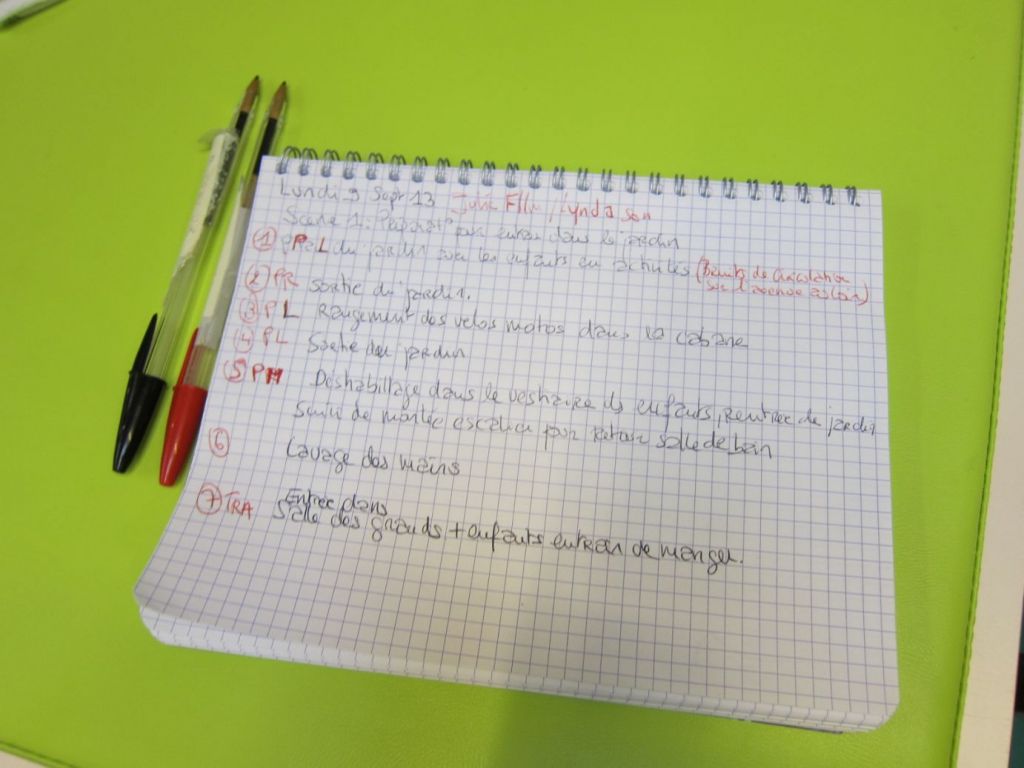 Lundi 9 Sept 13 Julie Film / Lynda son
Scene 1: dans le jardin
① PL du jardin avec les enfants en activités (Bruits de circulation
sur l'avenue au loin)
② PR sortie du jardin.
③ PL Rangement des velos motos dans la cabane
④ PL Sortie du jardin
⑤ PM Deshabillage dans le vestiaire ds enfants, Rentrée de jardin
Suivi de montée escalier pour salle de bain
⑥ Lavage des mains
Entree dans
⑦ TRA Salle des grands + enfants entrain de manger.